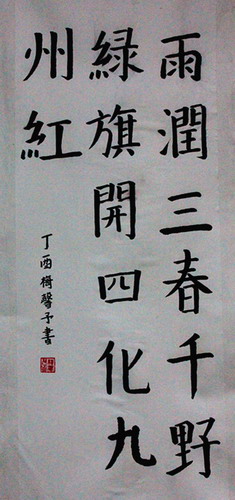 雨潤三春千野
綠旗開四化九
州紅
丁酉梅馨予書